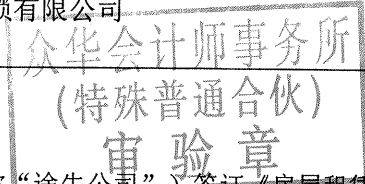 锁有限公司
众华会计师事务所
(特殊普通合伙)
审验章
“途牛公司”）签订《房屋租赁